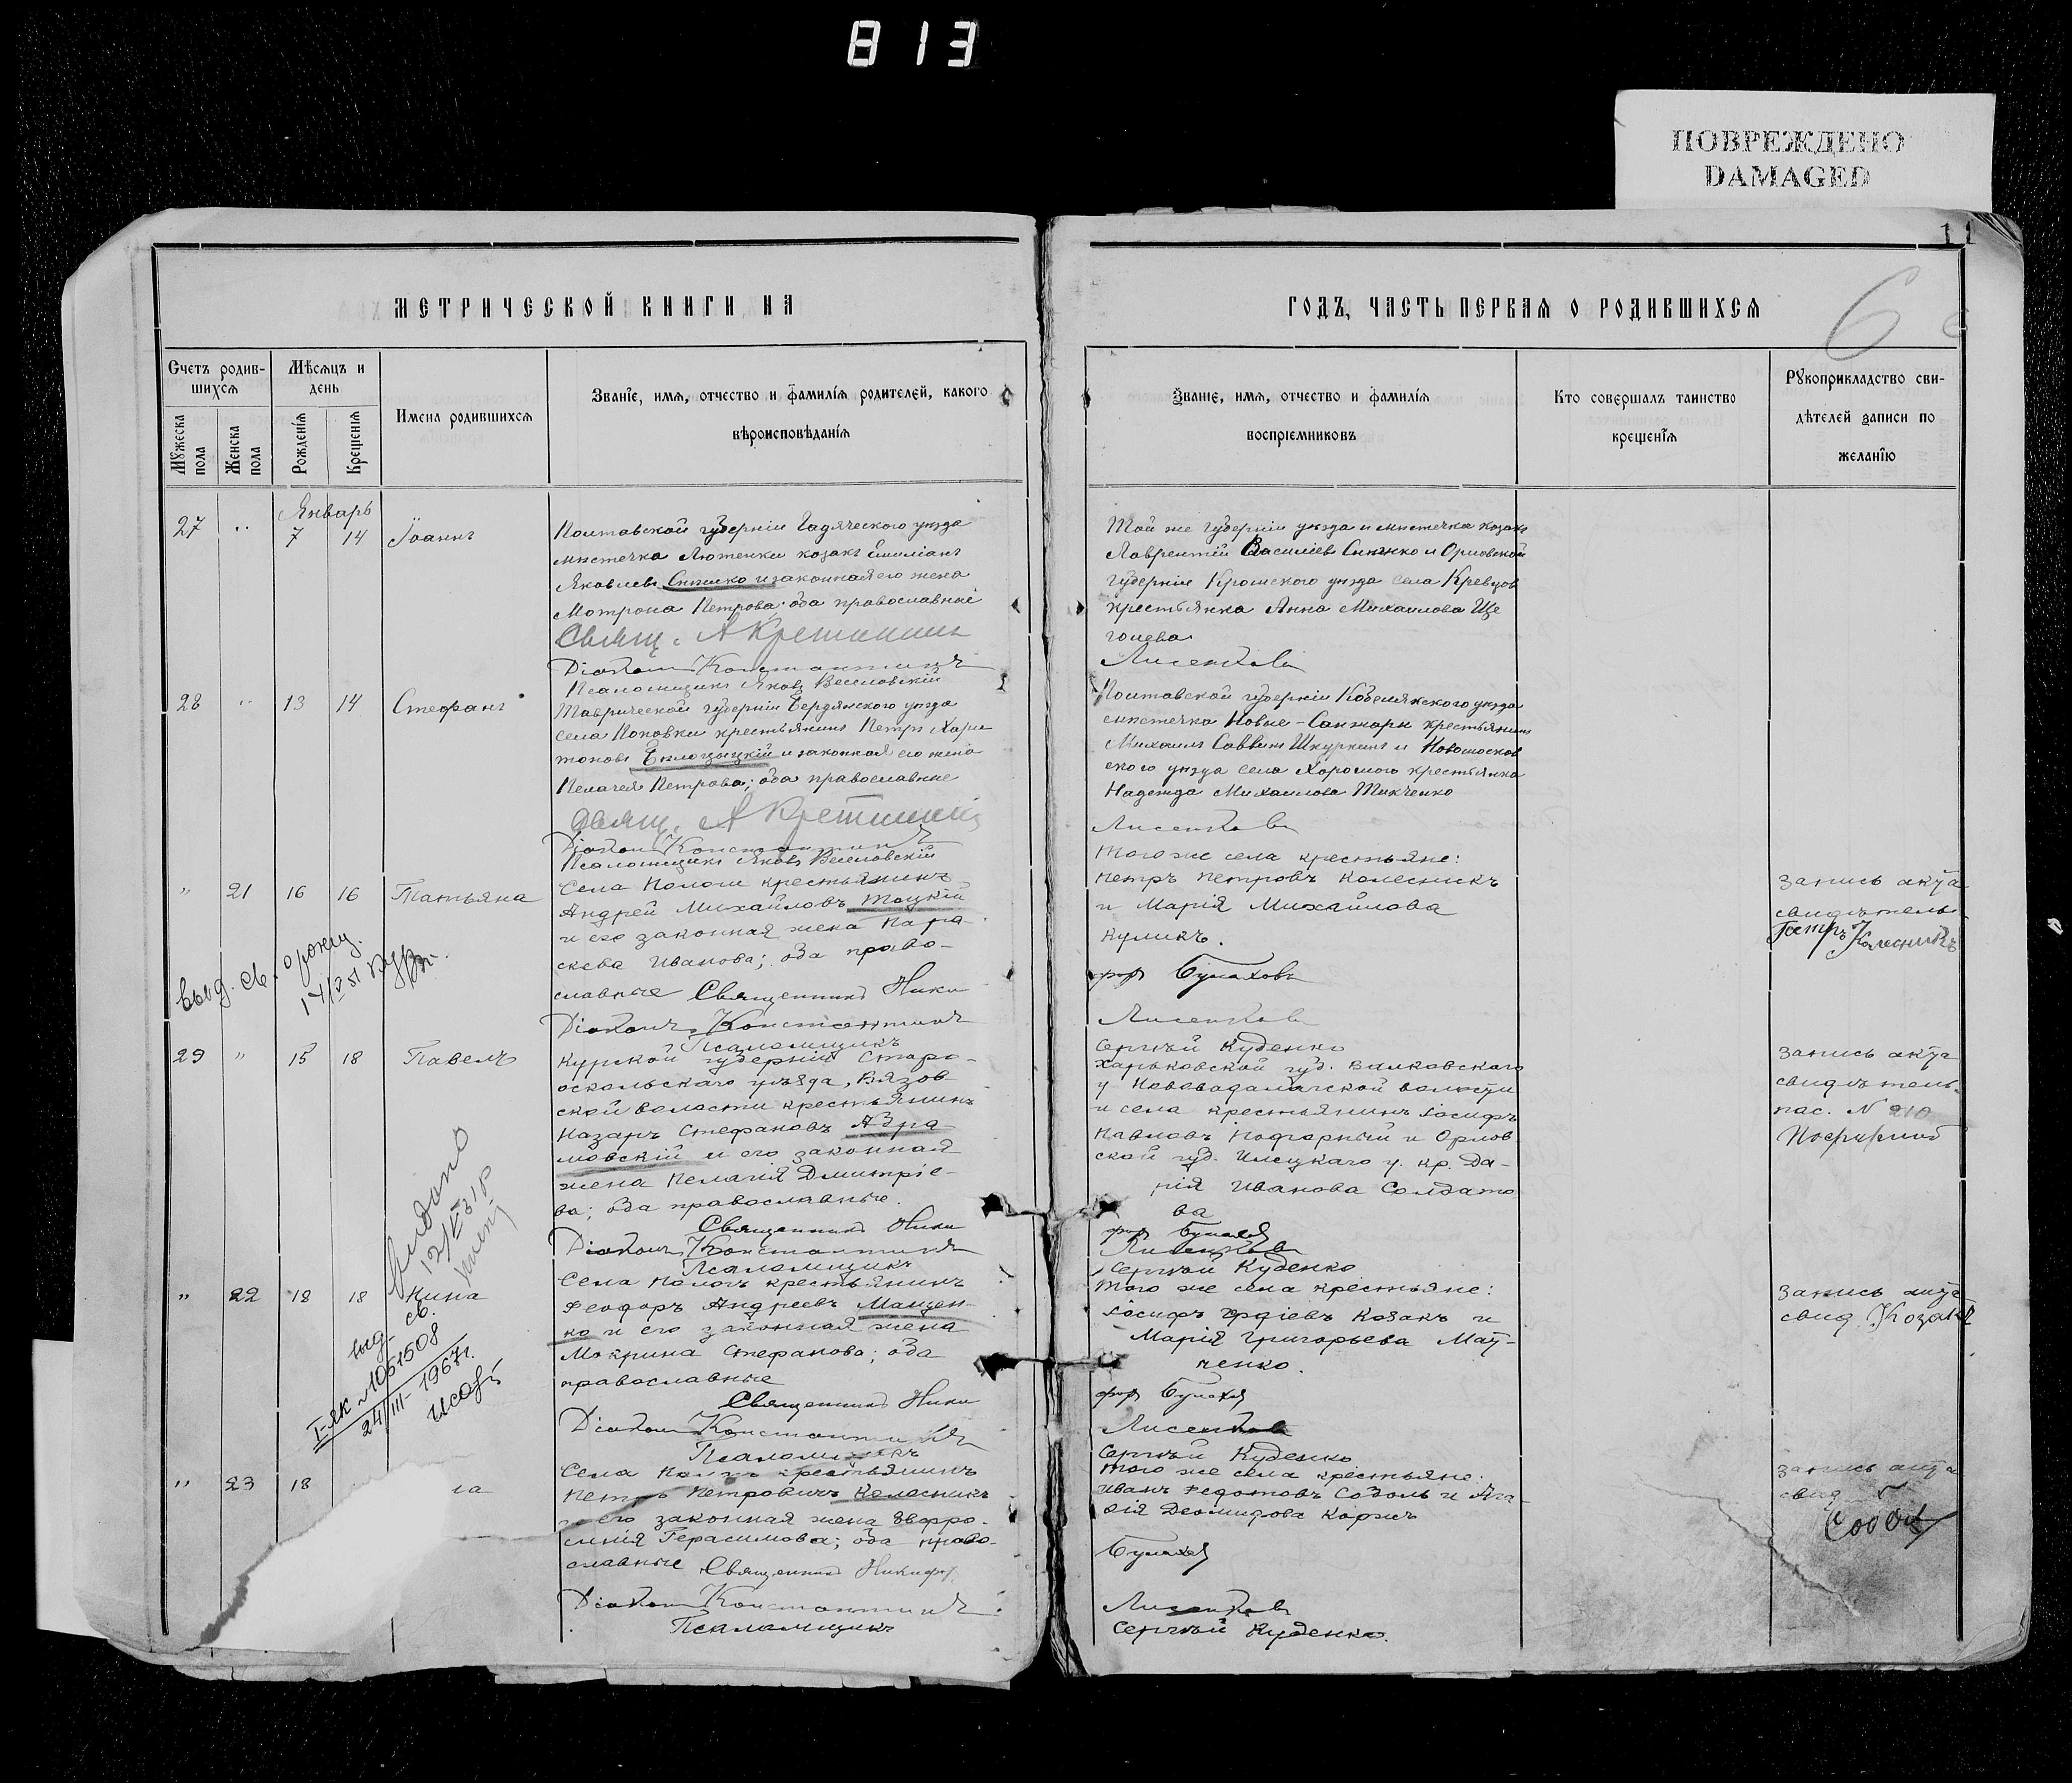 813
ПОВРЕЖДЕНО
DAMAGED
11
6
МЕТРИЧЕСКОЙ КНИГИ НА
ГОДЪ, ЧАСТЬ ПЕРВАЯ О РОДИВШИХСЯ
Счетъ родив-
шихся
Мужеска пола
Женска пола
Мѣсяцъ и
день
Рожденія
Крещенія
Имена родившихся
Званіе, имя, отчество и фамилія родителей, какого
вѣроисповѣданія
Званіе, имя, отчество и фамилія
воспріемниковъ
Кто совершалъ таинство
крещенія
Рукоприкладство сви-
дѣтелей записи по
желанію
Январь
27 " 7 14 Іоаннъ
Полтавской губерніи Гадяческого уѣзда
мѣстечка Лютенки козакъ Емиліанъ
Яковлевъ и законная его жена
Мотрона Петрова; оба православные
Свящ. А Кретининъ
Діаконъ Константинъ
Псаломщикъ Яковъ Веселовскій
Той же губерніи уѣзда и мѣстечка козакъ
Лаврентій Василіевъ и Орловской
губерніи Кромского уѣзда села Кревцов
крестьянка Анна Михаилова Ще
голева
Лисенков
28 " 13 14 Стефанъ
Таврической губерніи Бердянского уѣзда
села Поповки крестьянинъ Петръ Хари
тоновъ Бѣлоцицкій и законная его жена
Пелагея Петрова; оба православные
Свящ. А Кретининъ
Діаконъ Константинъ
Псаломщикъ Яковъ Веселовскій
Полтавской губерніи Кобелякского уѣзда
мѣстечка Новые-Санжары крестьянинъ
Михаилъ Саввинъ Шкуркинъ и Новомосков
ского уѣзда села Хорошого крестьянка
Надежда Михаилова Ткаченко
Лисенков
" 21 16 16 Татьяна
Села Пологи крестьянинъ
Андрей Михайловъ Тоцкій
и его законная жена Пара-
скева Иванова; оба право-
славные Священникъ Ники
Діаконъ Константинъ
Псаломщикъ
Того же села крестьяне:
Петръ Петровъ Колесникъ
и Марія Михайлова
Куликъ.
фор Булахов
Лисенков
Сергѣй Куденко
Запись акта
свидѣтель
Петръ Колесникъ
выд. св. о рожд.
29 " 15 18 Павелъ
Курской губерніи Старо-
оскольскаго уѣзда, Вязов-
ской волости крестьянинъ
Назаръ Стефановъ Абра
мовскій и его законная
жена Пелагія Дмитріе-
ва; оба православные.
Священникъ Ники
Діаконъ Константинъ
Псаломщикъ
Харьковской губ. Валковскаго
у Нововодолажской волости
и села крестьянинъ Іосифъ
Павловъ Нагорный и Орлов
ской губ. Елецкаго у. кр. Да-
рія Иванова Солдато
ва
фор Булахов
Лисенков
Сергѣй Куденко
Запись акта
свидѣтель.
пас. N 210
Выдано
" 22 18 18 Нина
Села Пологъ крестьянинъ
Феодоръ Андреевъ Мацен-
ко и его законная жена
Мокрина Стефанова; оба
православные
Священникъ Ники
Діаконъ Константинъ
Псаломщикъ
Того же села крестьяне:
Іосифъ Козакъ и
Марія Григорьева Мац-
ченко.
фор Булахов
Лисенков
Сергѣй Куденко
Запись акта
свид. Козакъ
выд. св.
I-ЯК N 1051508
24/III-1967г.
" 23 18 на
Села Пологъ крестьянинъ
Петръ Петровичъ Колесникъ
и его законная жена Евфро-
синія Герасимова; оба право-
славные Священникъ Никиф
Діаконъ Константинъ
Псаломщикъ
Того же села крестьяне:
Иванъ Федотовъ Соболь и Ага-
фія Деомидова Коржъ
Булахов
Лисенков
Сергѣй Куденко.
Запись акта
свид
Соболь